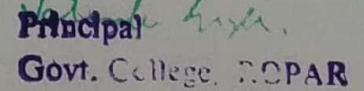 Principal
Govt. College, ROPAR